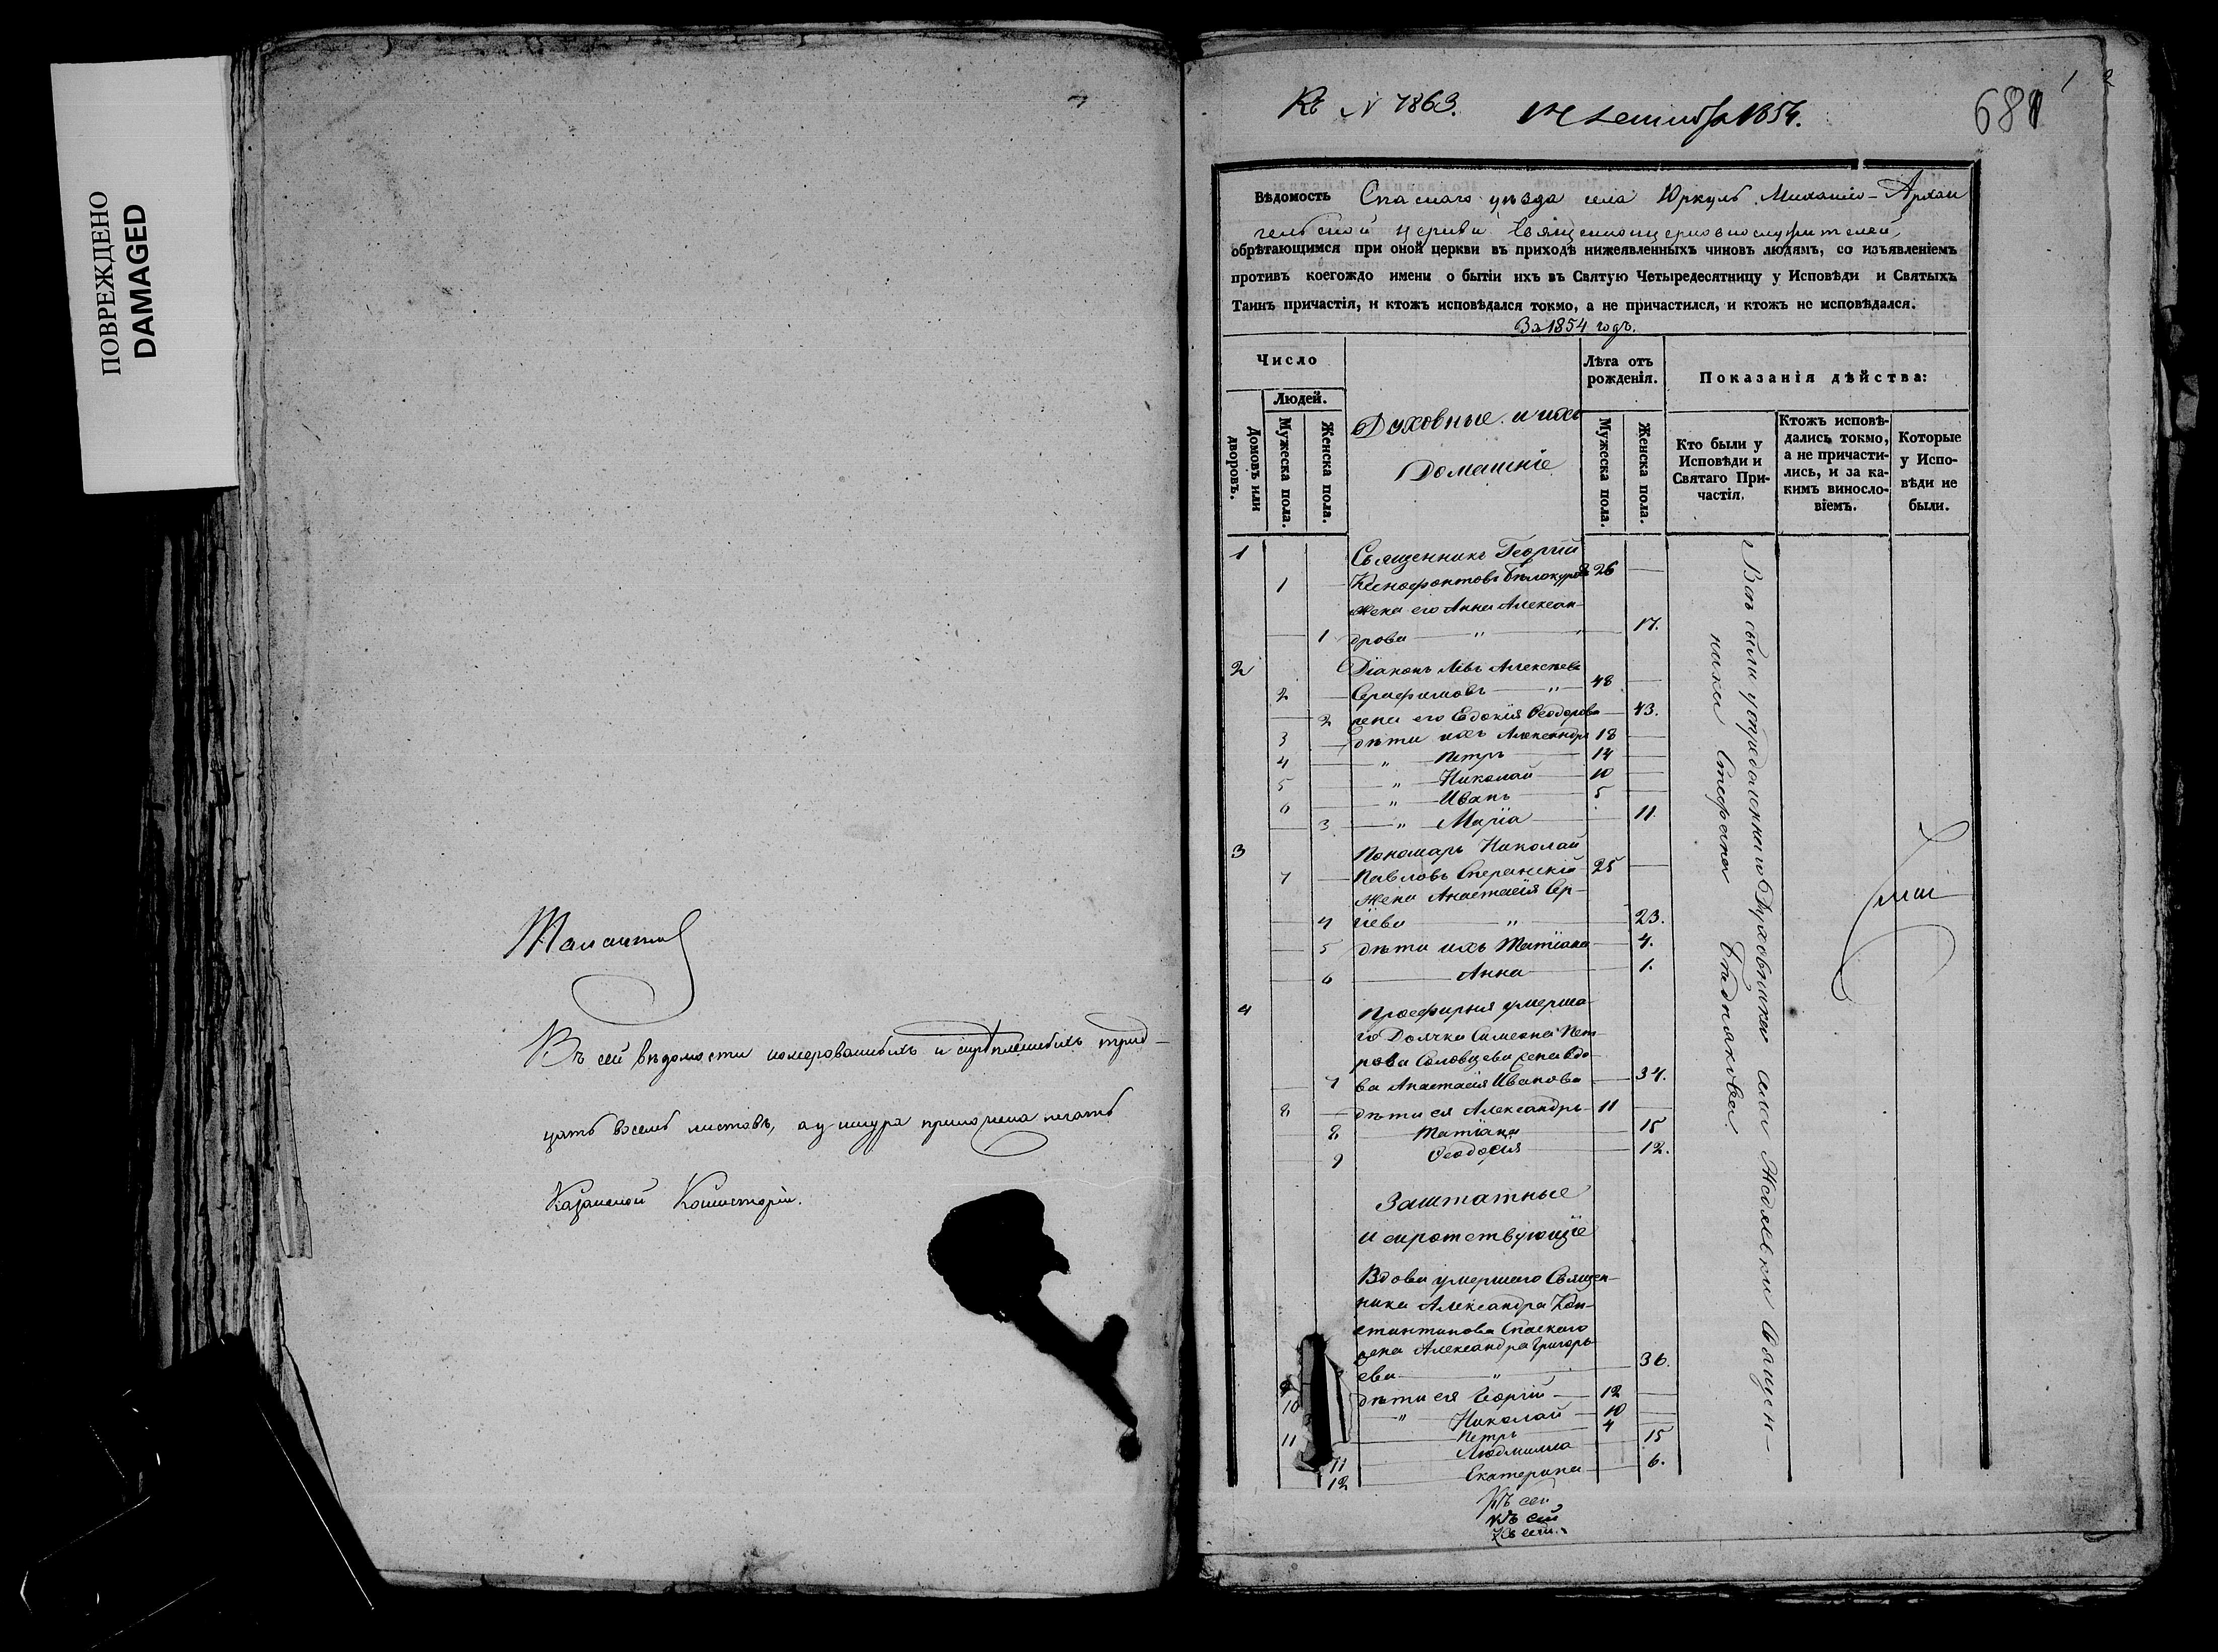 ПОВРЕЖДЕНО
DAMAGED
Въ сей вѣдомости номерованныхъ и скрѣпленныхъ трид-
цать восемь листовъ, а у шнура приложена печать
Казанской Консисторіи.
Къ N 7863. 1854.
681
1 2
Вѣдомость Спаскаго уѣзда села Юркуль Михаило-Архан
гельской церкви Священноцерковнослужителей,
обрѣтающимся при оной церкви въ приходѣ нижеявленныхъ чиновъ людямъ, со изъявленіемъ
противъ коегождо имени о бытіи ихъ въ Святую Четыредесятницу у Исповѣди и Святыхъ
Таинъ причастія, и ктожъ исповѣдался токмо, а не причастился, и ктожъ не исповѣдался.
За 1854 годъ.
Число
Людей.
Домовъ или дворовъ.
Мужеска пола.
Женска пола.
Духовные и ихъ
Домашніе
Лѣта отъ рожденія.
Мужеска пола.
Женска пола.
Показанія дѣйства:
Кто были у Исповѣди и Святаго Причастія.
Ктожъ исповѣдались токмо, а не причастились, и за какимъ винословіемъ.
Которые у Исповѣди не были.
1 Священникъ Георгій
1 Ксенофонтовъ Бѣлокуровъ 26
жена его Анна Алексан-
1 дрова " 17.
2 Діаконъ Левъ Алексѣевъ
2 Серафимовъ " 48
2 жена его Евдокія Ѳеодорова 43.
3 дѣти ихъ Александръ 18
4 " Петръ 14
5 " Николай 10
6 " Иванъ 5
3 " Марія 11
3 Пономарь Николай
7 Павловъ Сперанскій 25
жена Анастасія Сер-
4 гіева " 23.
5 дѣти ихъ Татіана 4.
6 Анна 1.
4 Просфирня умерша-
го Дьячка Симеона Пет-
рова Соловцева жена вдо-
7 ва Анастасія Иванова 34.
8 дѣти ея Александръ 11
8 Татіана 15
9 Ѳеодосія 12.
Заштатные
и сиротствующіе
Вдова умершаго Священ-
ника Александра Кон-
стантинова Спаскаго
жена Александра Григорь-
ева " 36.
9 дѣти ея Георгій 12
10 " Николай 10
11 Петръ 4
11 Людмилла 15
12 Екатерина 6.
Всѣ были у опредѣленнаго Духовника села Жедяевки Священ-
ника Стефана Бѣднякова.
Къ сей
Къ сей
Къ сей